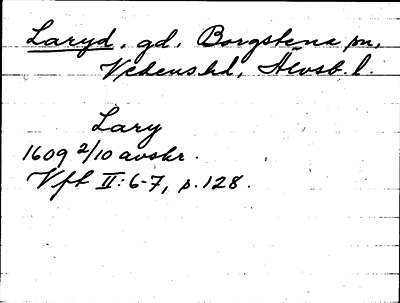 Laryd, gd, Borgstena sn,
Vedens hd, Älvsb. l.
Lary
1609 2/10 avskr.
Vft II: 6-7, p. 128.